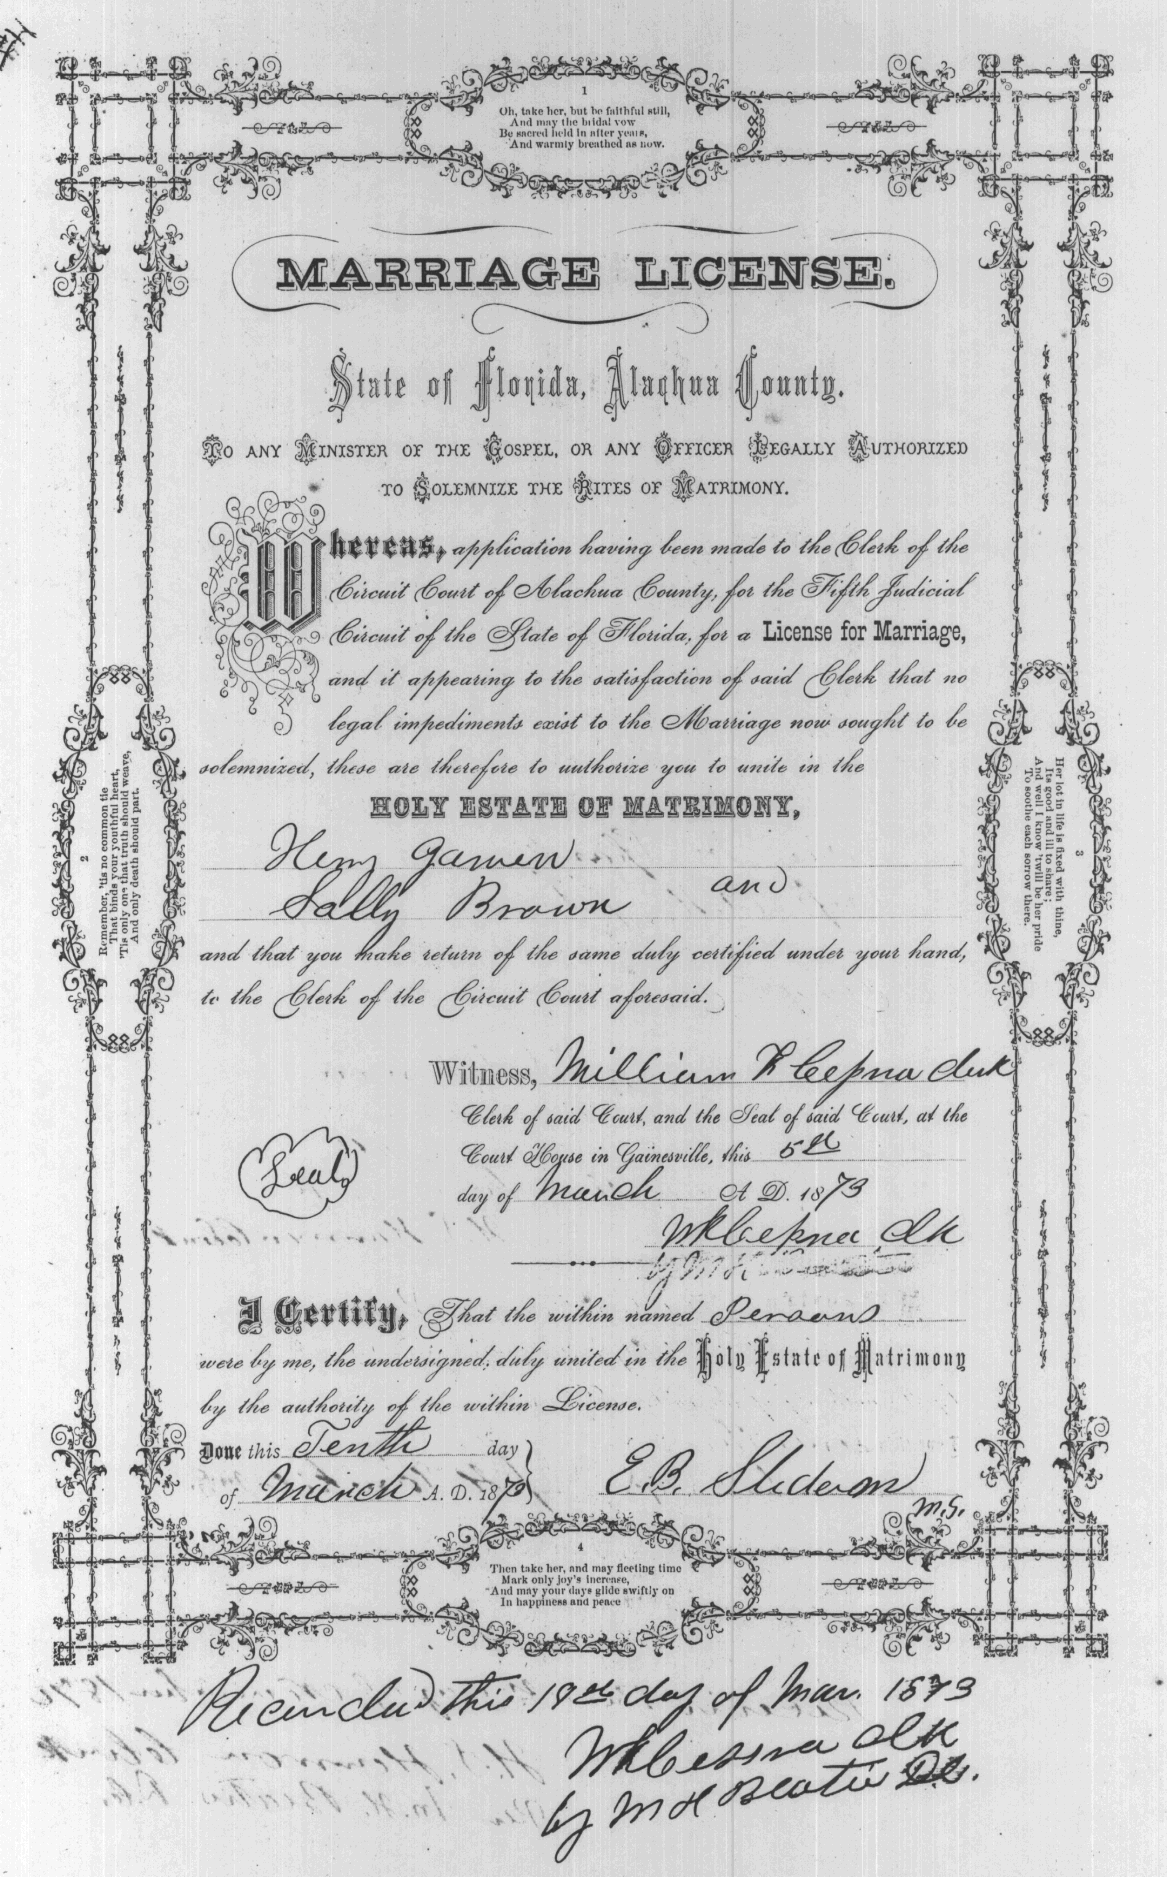 1
Oh, take her, but be faithful still,
And may the bridal vow
Be sacred held in after years,
And warmly breathed as now.
MARRIAGE LICENSE.
State of Florida, Alachua County.
TO ANY MINISTER OF THE GOSPEL, OR ANY OFFICER LEGALLY AUTHORIZED
TO SOLEMNIZE THE RITES OF MATRIMONY.
Whereas, application having been made to the Clerk of the
Circuit Court of Alachua County, for the Fifth Judicial
Circuit of the State of Florida, for a License for Marriage,
and it appearing to the satisfaction of said Clerk that no
legal impediments exist to the Marriage now sought to be
solemnized, these are therefore to authorize you to unite in the
HOLY ESTATE OF MATRIMONY,
Henry
and
Sally Brown
and that you make return of the same duly certified under your hand,
to the Clerk of the Circuit Court aforesaid.
2
Remember, 'tis no common tie
That binds your youthful heart,
'Tis only one that truth should weave,
And only death should part.
3
Her lot in life is fixed with thine,
Its good and ill to share;
And well I know 'twill be her pride
To soothe each sorrow there.
Witness, William K Cessna Clerk
Clerk of said Court, and the Seal of said Court, at the
Court House in Gainesville, this 5th
day of March A D. 1873
Seal
WK Cessna Clk
by M H
I Certify, That the within named Persons
were by me, the undersigned, duly united in the Holy Estate of Matrimony
by the authority of the within License.
Done this Tenth day
of March A. D. 1873
E.B.
M.G.
4
Then take her, and may fleeting time
Mark only joy's increase,
And may your days glide swiftly on
In happiness and peace
Recorded this 19th day of Mar. 1873
WK Cessna Clk
by M H Beatie DC.